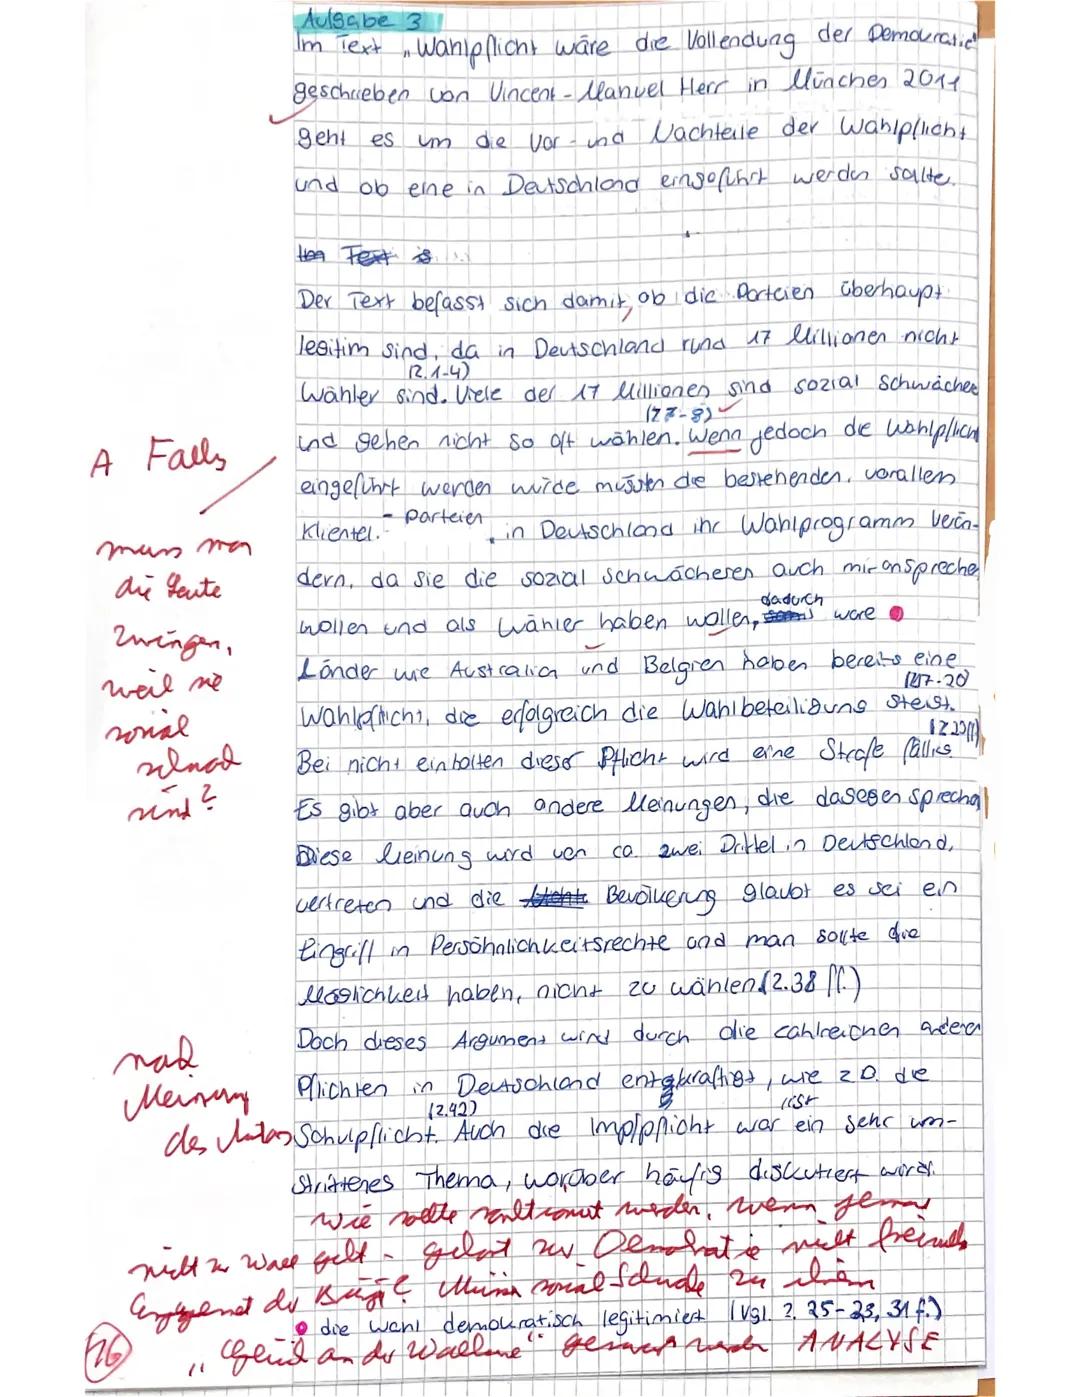 Aufgabe 3
Im Text „Wahlpflicht wäre die Vollendung der Demokratie"
geschrieben von Vincent-Manuel Herr in München 2011
geht es um die Vor- und Nachteile der Wahlpflicht
und ob eine in Deutschland eingeführt werden sollte.
Der Text befasst sich damit, ob die Parteien überhaupt
legitim sind, da in Deutschland rund 17 Millionen nicht
(Z.1-4)
Wähler sind. Viele der 17 Millionen sind sozial schwächer
(Z7-8)
und gehen nicht so oft wählen. Wenn jedoch die Wahlpflicht
A Falls
eingeführt werden würde müssten die bestehenden, vorallem
Klientel-Parteien, in Deutschland ihr Wahlprogramm verän-
muss man
die Leute
zwingen,
weil sie
sozial
schwach
sind?
dern, da sie die sozial schwächeren auch mit ansprechen
wollen und als Wähler haben wollen, dadurch wäre
Länder wie Australien und Belgien haben bereits eine
(Z17-20)
Wahlpflicht, die erfolgreich die Wahlbeteiligung steigt.
Bei nicht einhalten dieser Pflicht wird eine Strafe fällig.
Es gibt aber auch andere Meinungen, die dagegen sprechen
Diese Meinung wird von ca. zwei Drittel in Deutschland,
vertreten und die Bevölkerung glaubt es sei ein
Eingriff in Persönlichkeitsrechte und man sollte die
Möglichkeit haben, nicht zu wählen (Z.38 ff.)
Doch dieses Argument wird durch die zahlreichen anderen
nach
Meinung
des Autors
Pflichten in Deutschland entkräftigt, wie z.B. die
(Z.42)
ist
Schulpflicht. Auch die Impfpflicht war ein sehr um-
strittenes Thema, worüber häufig diskutiert wird.
Wie sollte kontrolliert werden, wenn jemand
nicht zu Wahl geht - gehört zur Demokratie nicht freiwilliges
Engagement der Bürger?
die Wahl demokratisch legitimiert (vgl. Z. 25-23, 31 f.)
ANALYSE